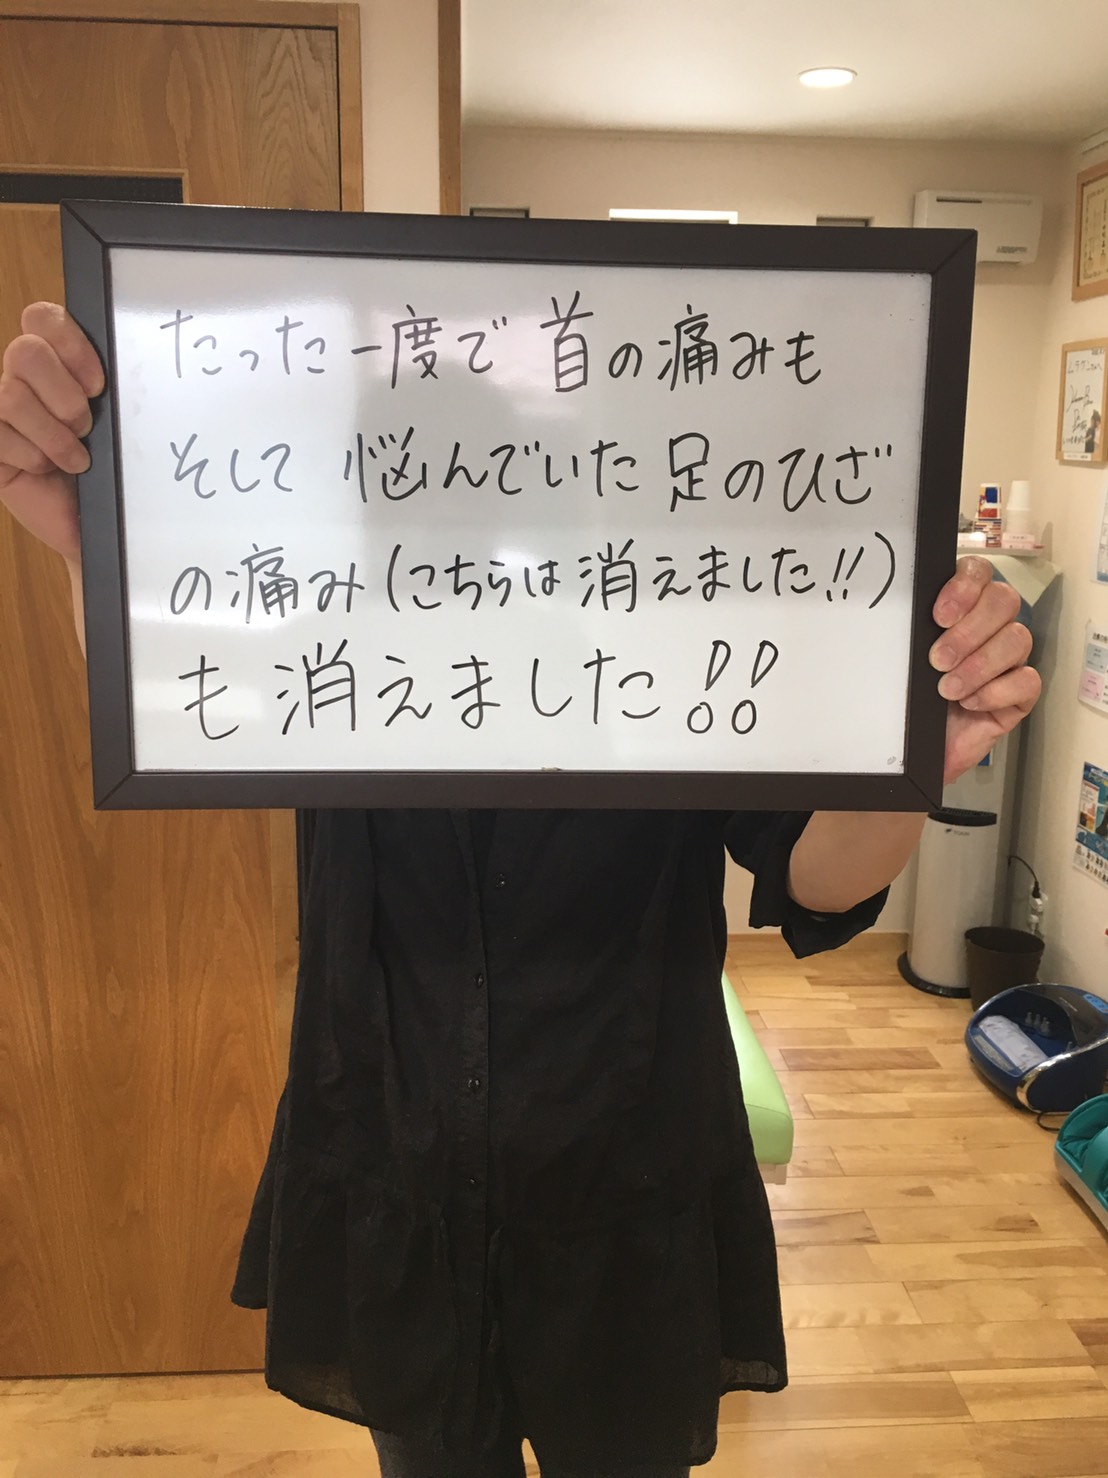 たった一度で首の痛みも
そして悩んでいた足のひざ
の痛み(こちらは消えました!!)
も消えました!!